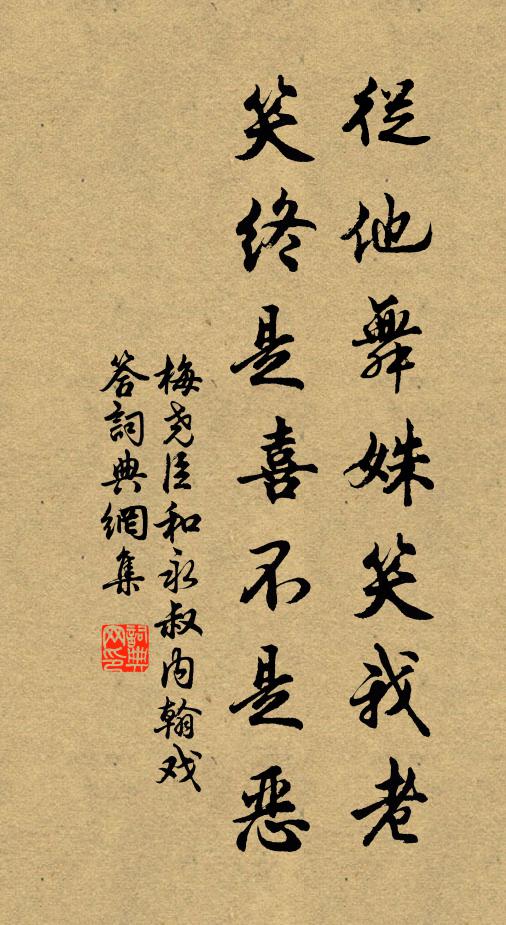 從他舞姝笑我老
笑終是喜不是惡
梅尧臣和永叔内翰戏
答詞典網集
詞典网印